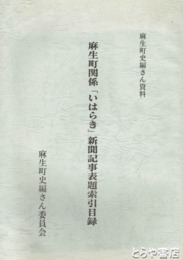 麻生町史編さん資料
麻生町関係「いはらき」新聞記事表題索引目録
麻生町史編さん委員会
とらや書店